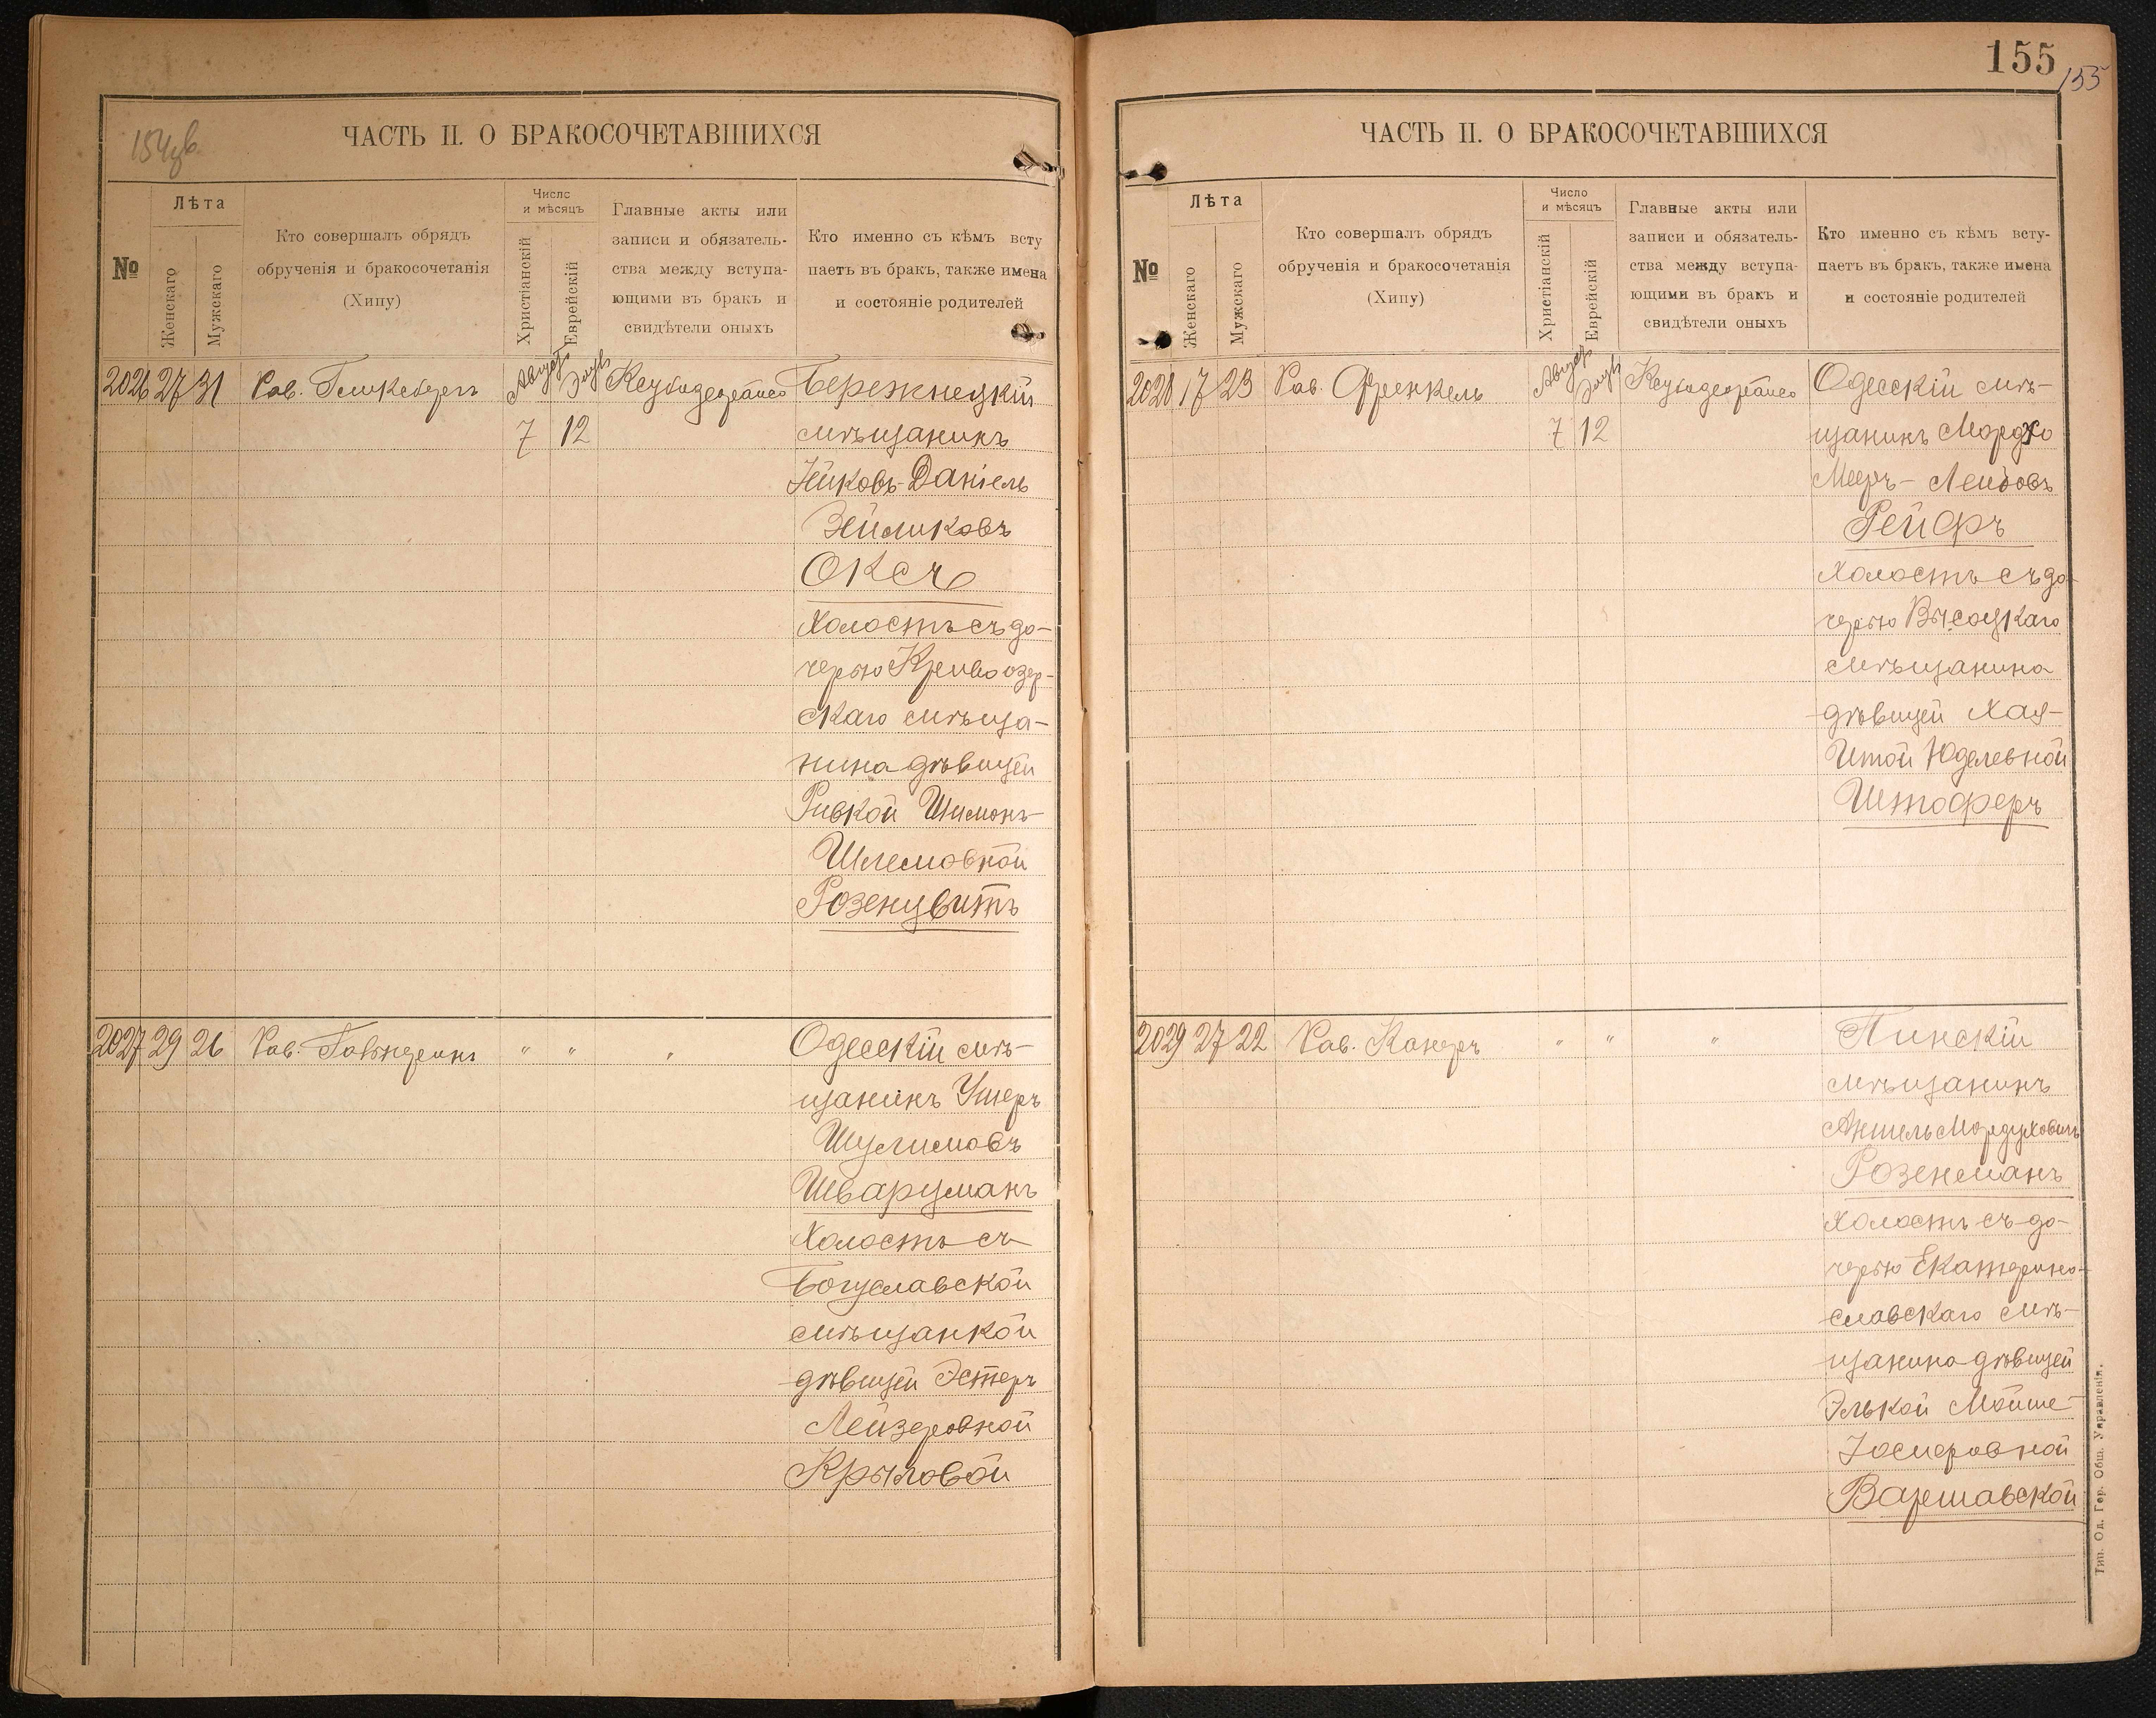 154об.
ЧАСТЬ II. О БРАКОСОЧЕТАВШИХСЯ
№
Лѣта
Женскаго
Мужскаго
Кто совершалъ обрядъ
обрученія и бракосочетанія
(Хипу)
Число
и мѣсяцъ
Христіанскій
Еврейскій
Главные акты или
записи и обязатель-
ства между вступа-
ющими въ бракъ и
свидѣтели оныхъ
Кто именно съ кѣмъ всту
паетъ въ бракъ, также имена
и состояніе родителей
2026 27 31 Рав. Августъ Бережнецкій
7 12 мѣщанинъ
Даніель
Зейликовъ
Оксъ
холостъ съ до-
черью Кривоозер-
скаго мѣща-
нина дѣвицей
Ривкой Шимонъ-
Шлемовной
Розенцвитъ
2027 29 26 Рав. " " " Одесскій мѣ-
щанинъ Ушеръ
Шулимовъ
Шварцманъ
холостъ съ
Богуславской
мѣщанкой
дѣвицей Эстеръ
Лейзеровной
Крыловой
155
155
ЧАСТЬ II. О БРАКОСОЧЕТАВШИХСЯ
№
Лѣта
Женскаго
Мужскаго
Кто совершалъ обрядъ
обрученія и бракосочетанія
(Хипу)
Число
и мѣсяцъ
Христіанскій
Еврейскій
Главные акты или
записи и обязатель-
ства между вступа-
ющими въ бракъ и
свидѣтели оныхъ
Кто именно съ кѣмъ всту-
паетъ въ бракъ, также имена
и состояніе родителей
2028 17 23 Рав. Френкель Августъ Одесскій мѣ-
7 12 щанинъ Мордко
Мееръ-Лейбовъ
Рейфъ
холостъ съ до-
черью Высоцкаго
мѣщанина
дѣвицей Хая-
Итой Юделевной
Штоферъ
2029 27 22 Рав. Канеръ " " " Пинскій
мѣщанинъ
Аншель Мордуховичъ
Розенманъ
холостъ съ до-
черью Екатерино-
славскаго мѣ-
щанина дѣвицей
Элькой Мойше-
Іосифовной
Варшавской
Тип. Од. Гор. Общ. Управленія.